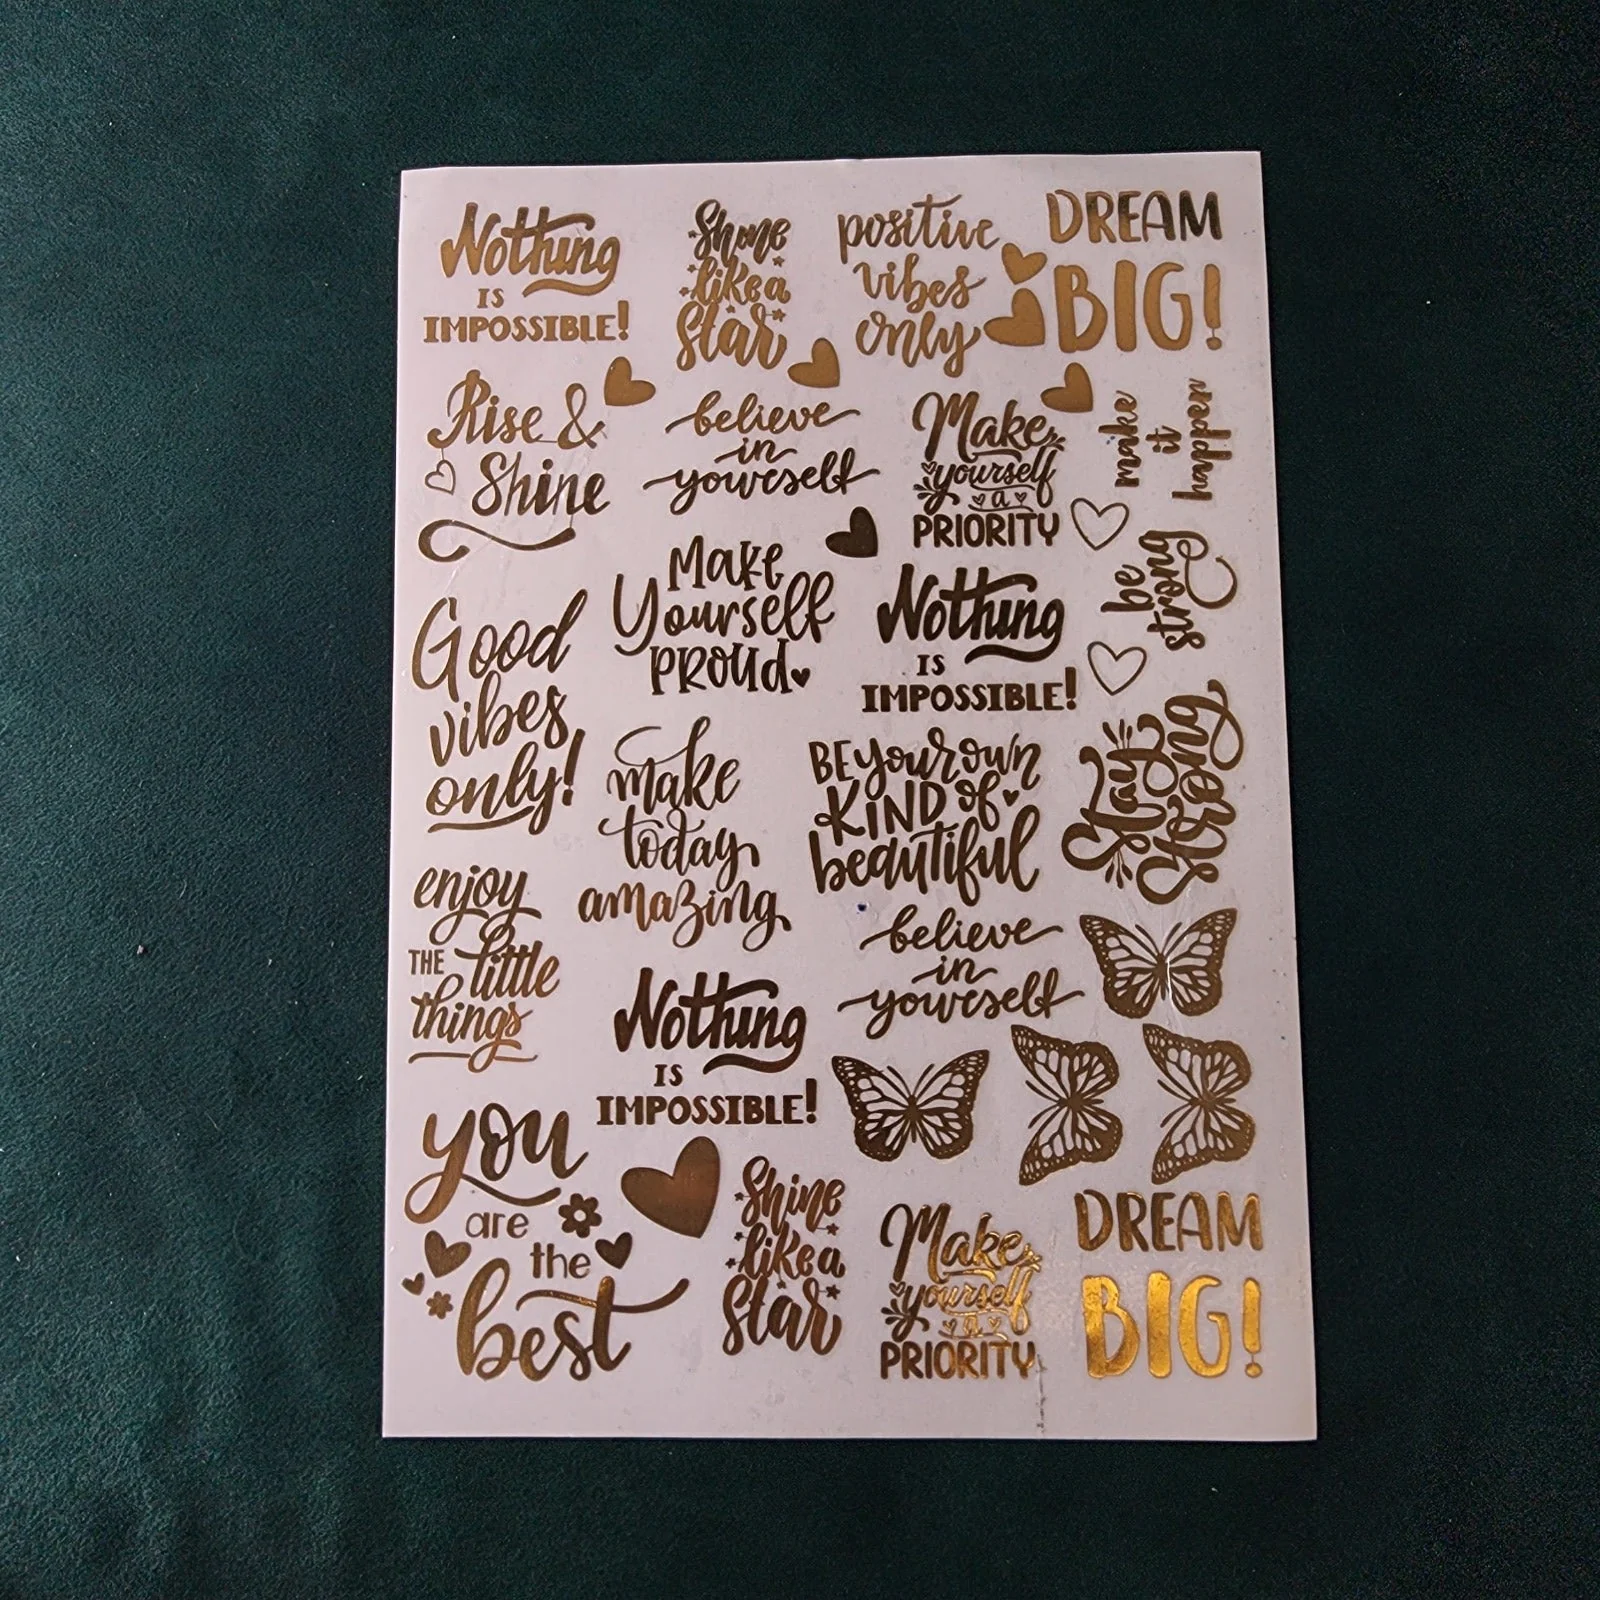 Nothing
IS
IMPOSSIBLE!
Shine
like a
Star
positive
vibes
only
DREAM
BIG!
Rise &
Shine
believe
in
yourself
Make
yourself
a
PRIORITY
make
it
happen
Make
Yourself
PROUD
Nothing
IS
IMPOSSIBLE!
be
strong
Good
vibes
only!
make
today
amazing
BE your own
KIND of
beautiful
Stay
Strong
enjoy
THE little
things
Nothing
IS
IMPOSSIBLE!
believe
in
yourself
you
are
the
best
Shine
like a
Star
Make
yourself
a
PRIORITY
DREAM
BIG!